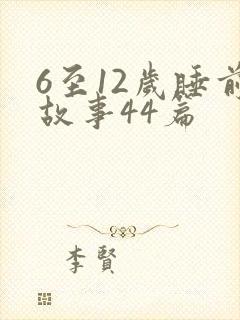 6至12歲睡前
故事44篇
李賢